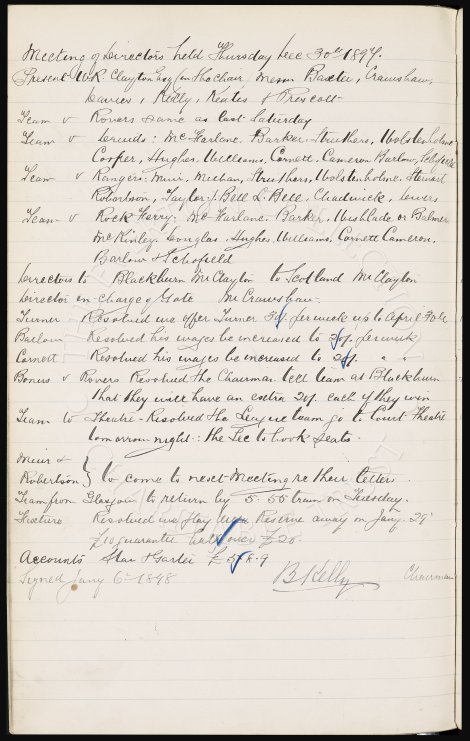 Meeting of Directors held Thursday Dec 30th 1897.
Present W.R. Clayton Esq (in the Chair) Messrs Baxter, Crawshaw,
Davies, Kelly, Keates & Prescott
Team v Rovers same as last Saturday
Team v Druids: McFarlane, Barker, Struthers, Wolstenholme
Cooper, Hughes, Williams, Cornett, Cameron, Barlow, Schofield
Team v Rangers: Muir, Meehan, Struthers, Wolstenholme, Stewart
Robertson, Taylor, J. Bell L. Bell, Chadwick, Divers
Team v Rock Ferry: McFarlane, Barker, or Balmer
McKinley, Douglas, Hughes, Williams, Cornett Cameron,
Barlow & Schofield
Directors to Blackburn Mr Clayton to Scotland Mr Clayton
Director in charge of Gate Mr Crawshaw.
Turner Resolved we offer Turner 30/- per week up to April 30th
Barlow Resolved his wages be increased to 20/- per week
Cornett Resolved his wages be increased to 20/- " "
Bonus v Rovers Resolved the Chairman tell team at Blackburn
that they will have an extra 20/- each if they win
Team to Theatre - Resolved the League team go to Court Theatre
tomorrow night: the Sec to book seats.
Muir &
Robertson } to come to next Meeting re their letter
Team from Glasgow to return by 5.55 train on Tuesday.
Fixture Resolved we play Reserve away on Jany 29
£10 guarantee over £20
Accounts Star & Garter £5/8.9
Signed Jany 6th 1898 B Kelly Chairman